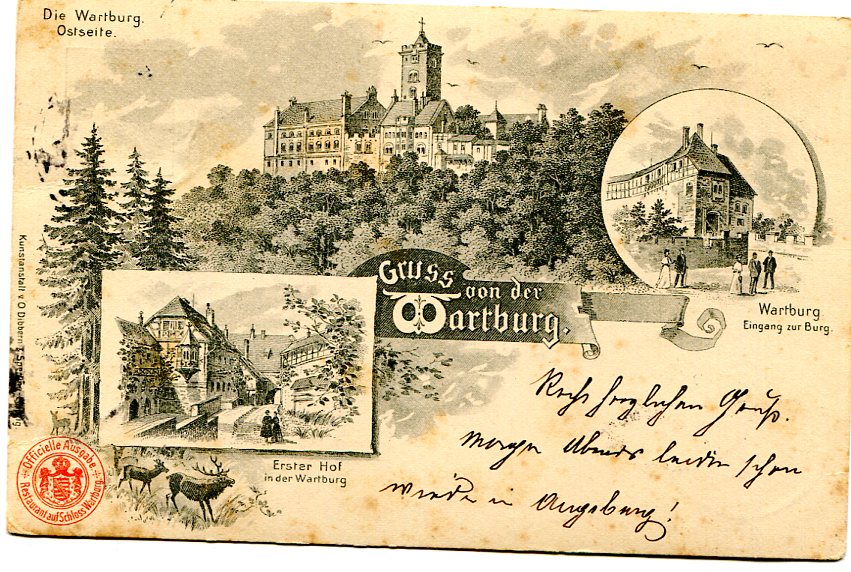 Die Wartburg.
Ostseite.
Gruss
von der
Wartburg.
Wartburg.
Eingang zur Burg.
Erster Hof
in der Wartburg
Kunstanstalt v. O Dibbern
Officielle Ausgabe
Restaurant auf Schloss Wartburg
Recht herzlichen Gruß.
Morgen Abend leider schon
wieder in Augsburg!